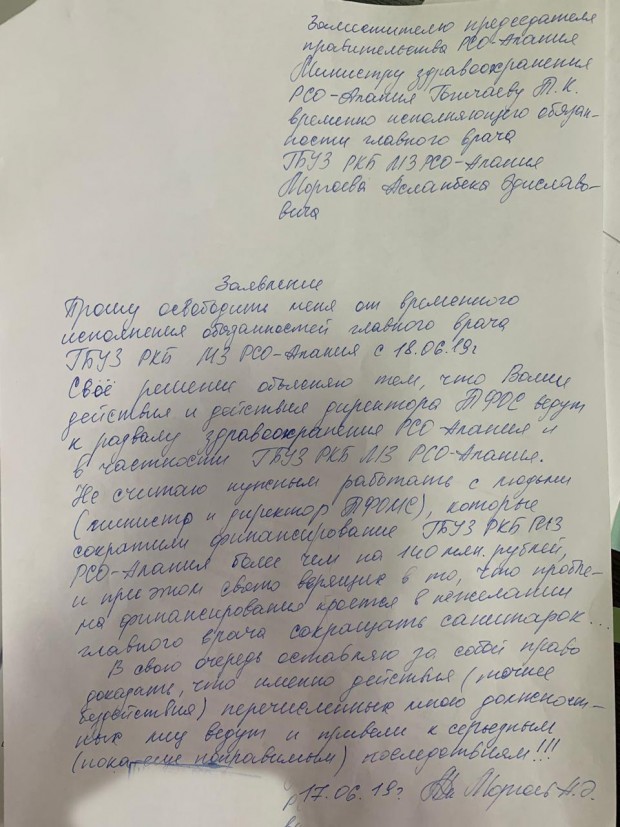 Заместителю председателя
правительства РСО-Алания
Министру здравоохранения
РСО-Алания Гогичаеву Т.К.
временно исполняющего обязан-
ности главного врача
ГБУЗ РКБ МЗ РСО-Алания
Моргоева Асланбека Эдиславо-
вича
Заявление
Прошу освободить меня от временного
исполнения обязанностей главного врача
ГБУЗ РКБ МЗ РСО-Алания с 18.06.19г
Своё решение объясняю тем, что Ваши
действия и действия директора ТФОС ведут
к развалу здравоохранения РСО-Алания и
в частности ГБУЗ РКБ МЗ РСО-Алания.
Не считаю нужным работать с людьми
(министр и директор ТФОМС), которые
сократили финансирование ГБУЗ РКБ МЗ
РСО-Алания более чем на 140 млн. рублей,
и при этом свято верящие в то, что пробле-
ма финансирования кроется в нежелании
главного врача сокращать санитарок...
В свою очередь оставляю за собой право
доказать, что именно действия (точнее
бездействия) перечисленных мною должност-
ных лиц ведут и привели к серьезным
(пока еще поправимым) последствиям!!!
17.06.19г. Моргоев А.Э.